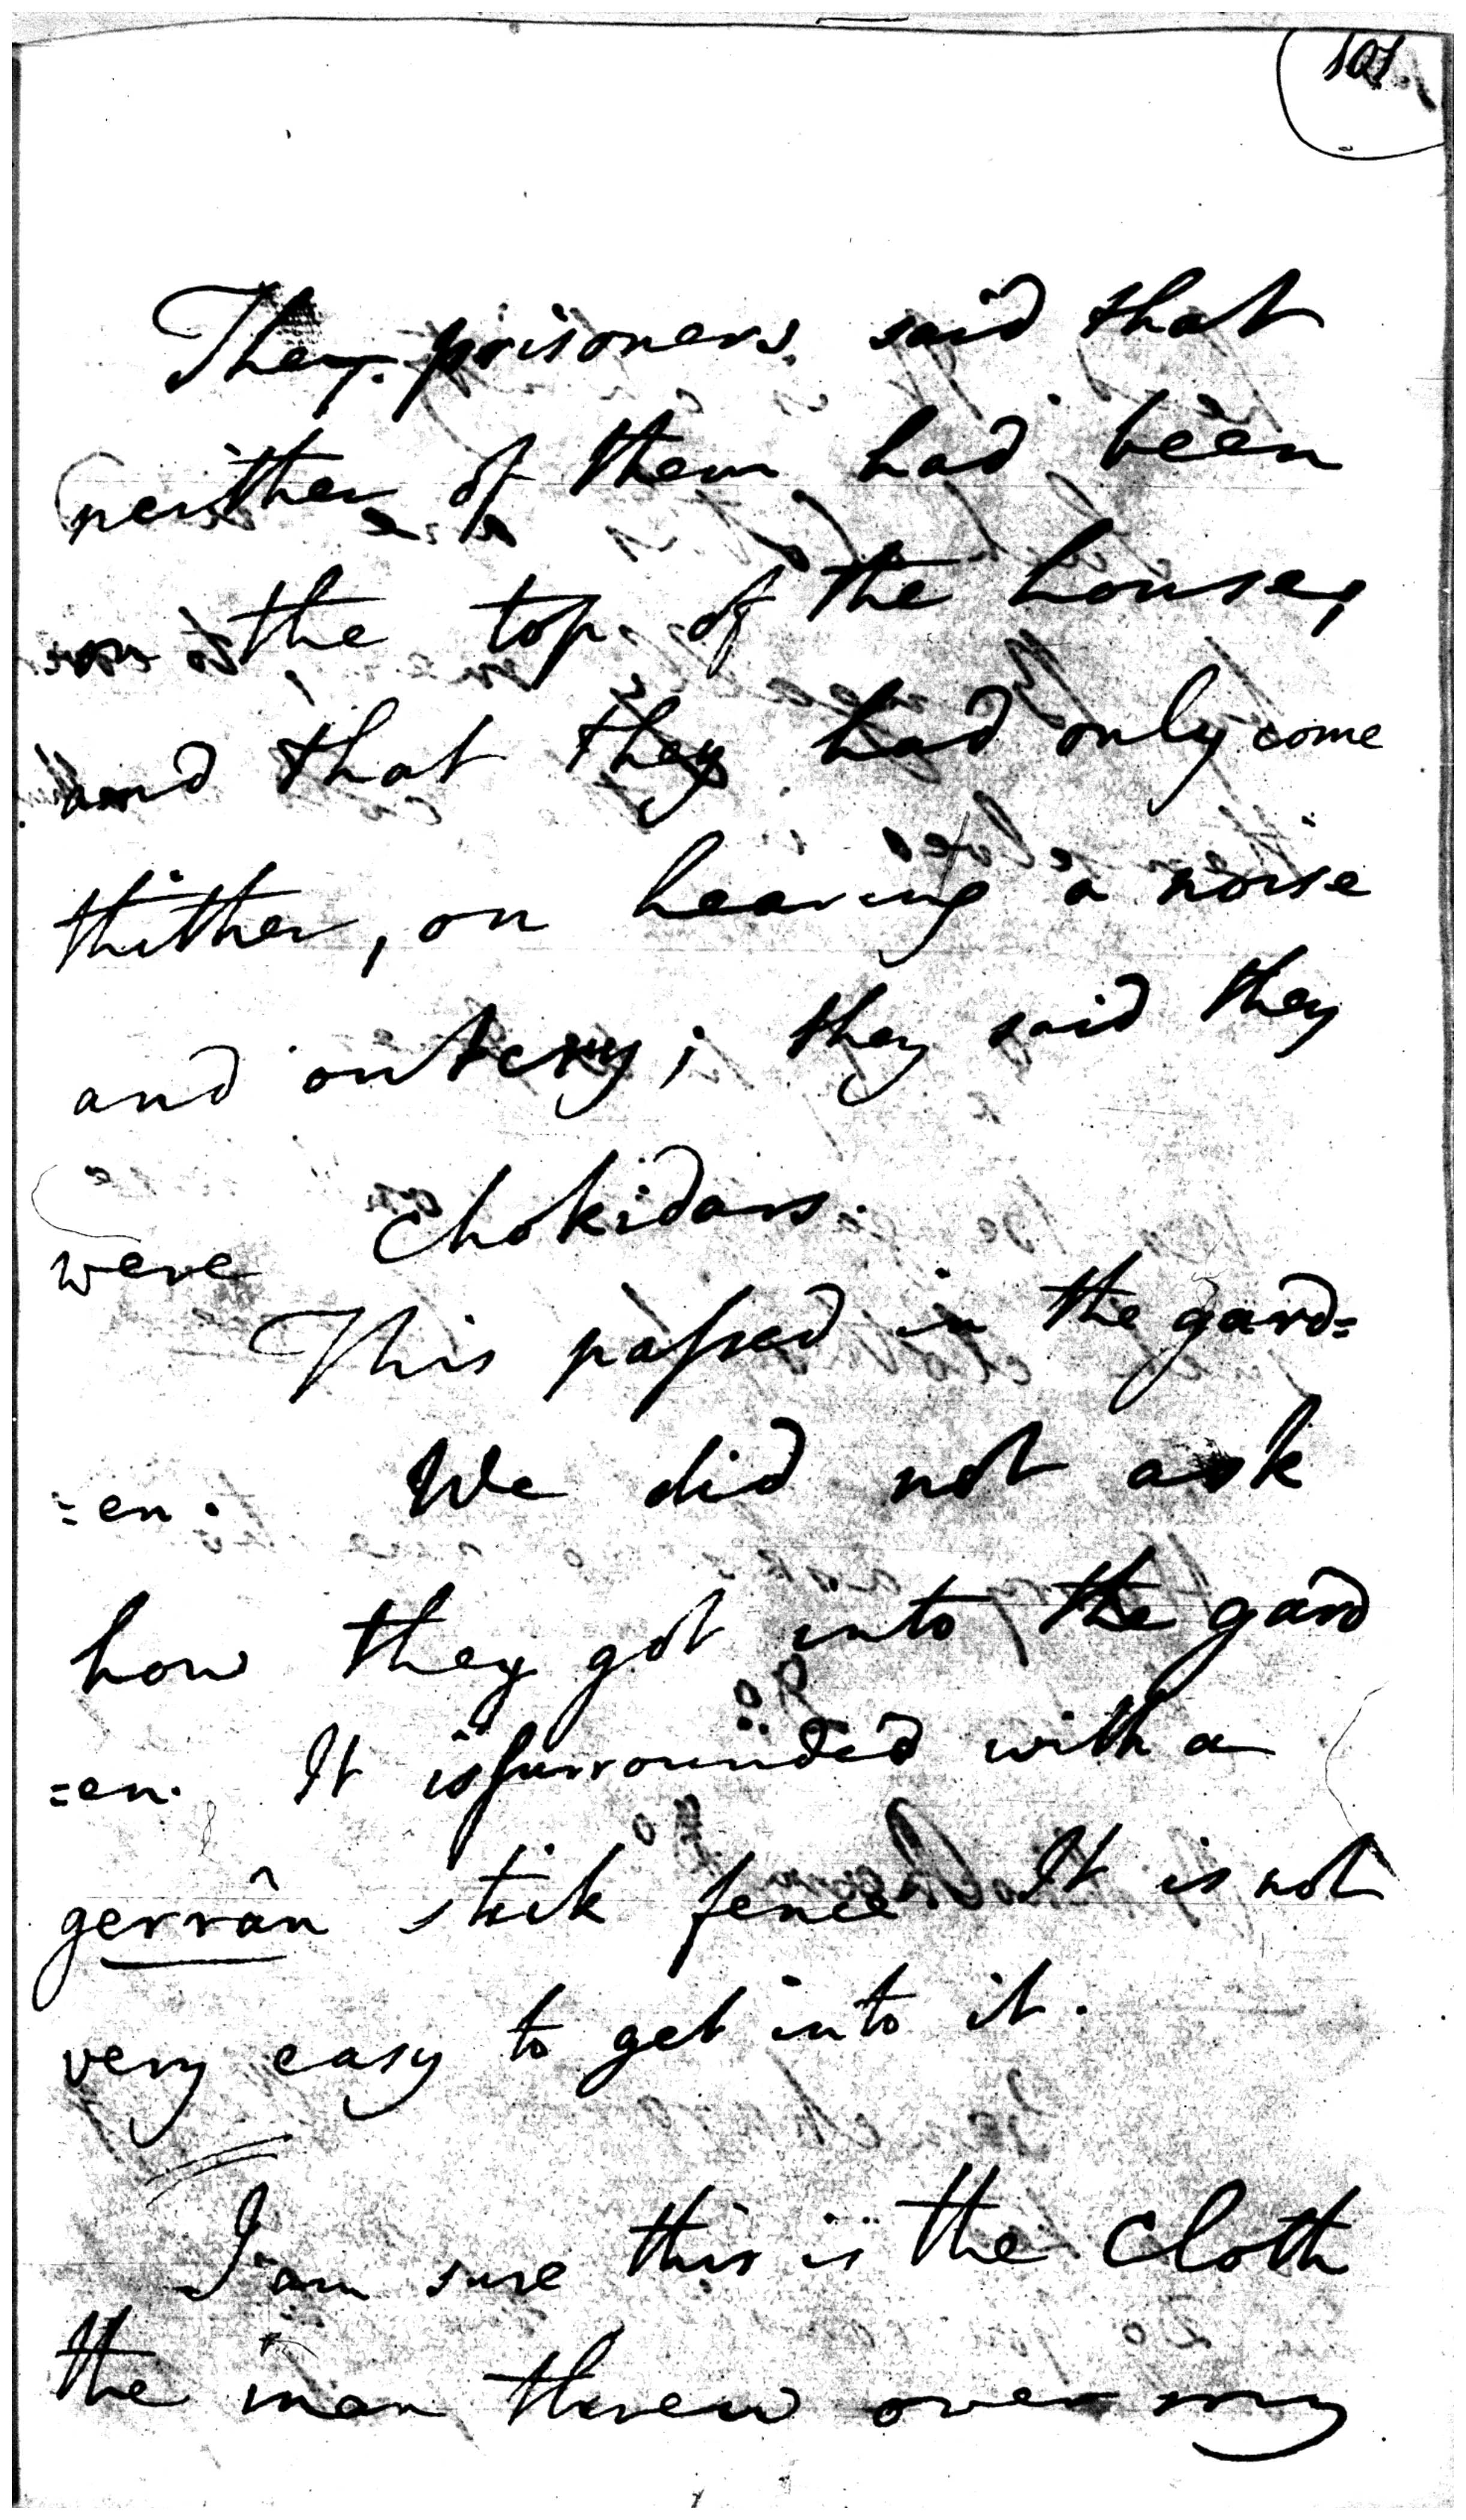 They prisoners said that
neither of them had been
on the top of the house,
and that they had only come
thither, on hearing a noise
and outcry; they said they
were Chokidars.
This passed in the gard=
=en. We did not ask
how they got into the gard
=en. It is surrounded with a
gerrân stick fence. It is not
very easy to get into it.
I am sure this is the Cloth
the man threw over my